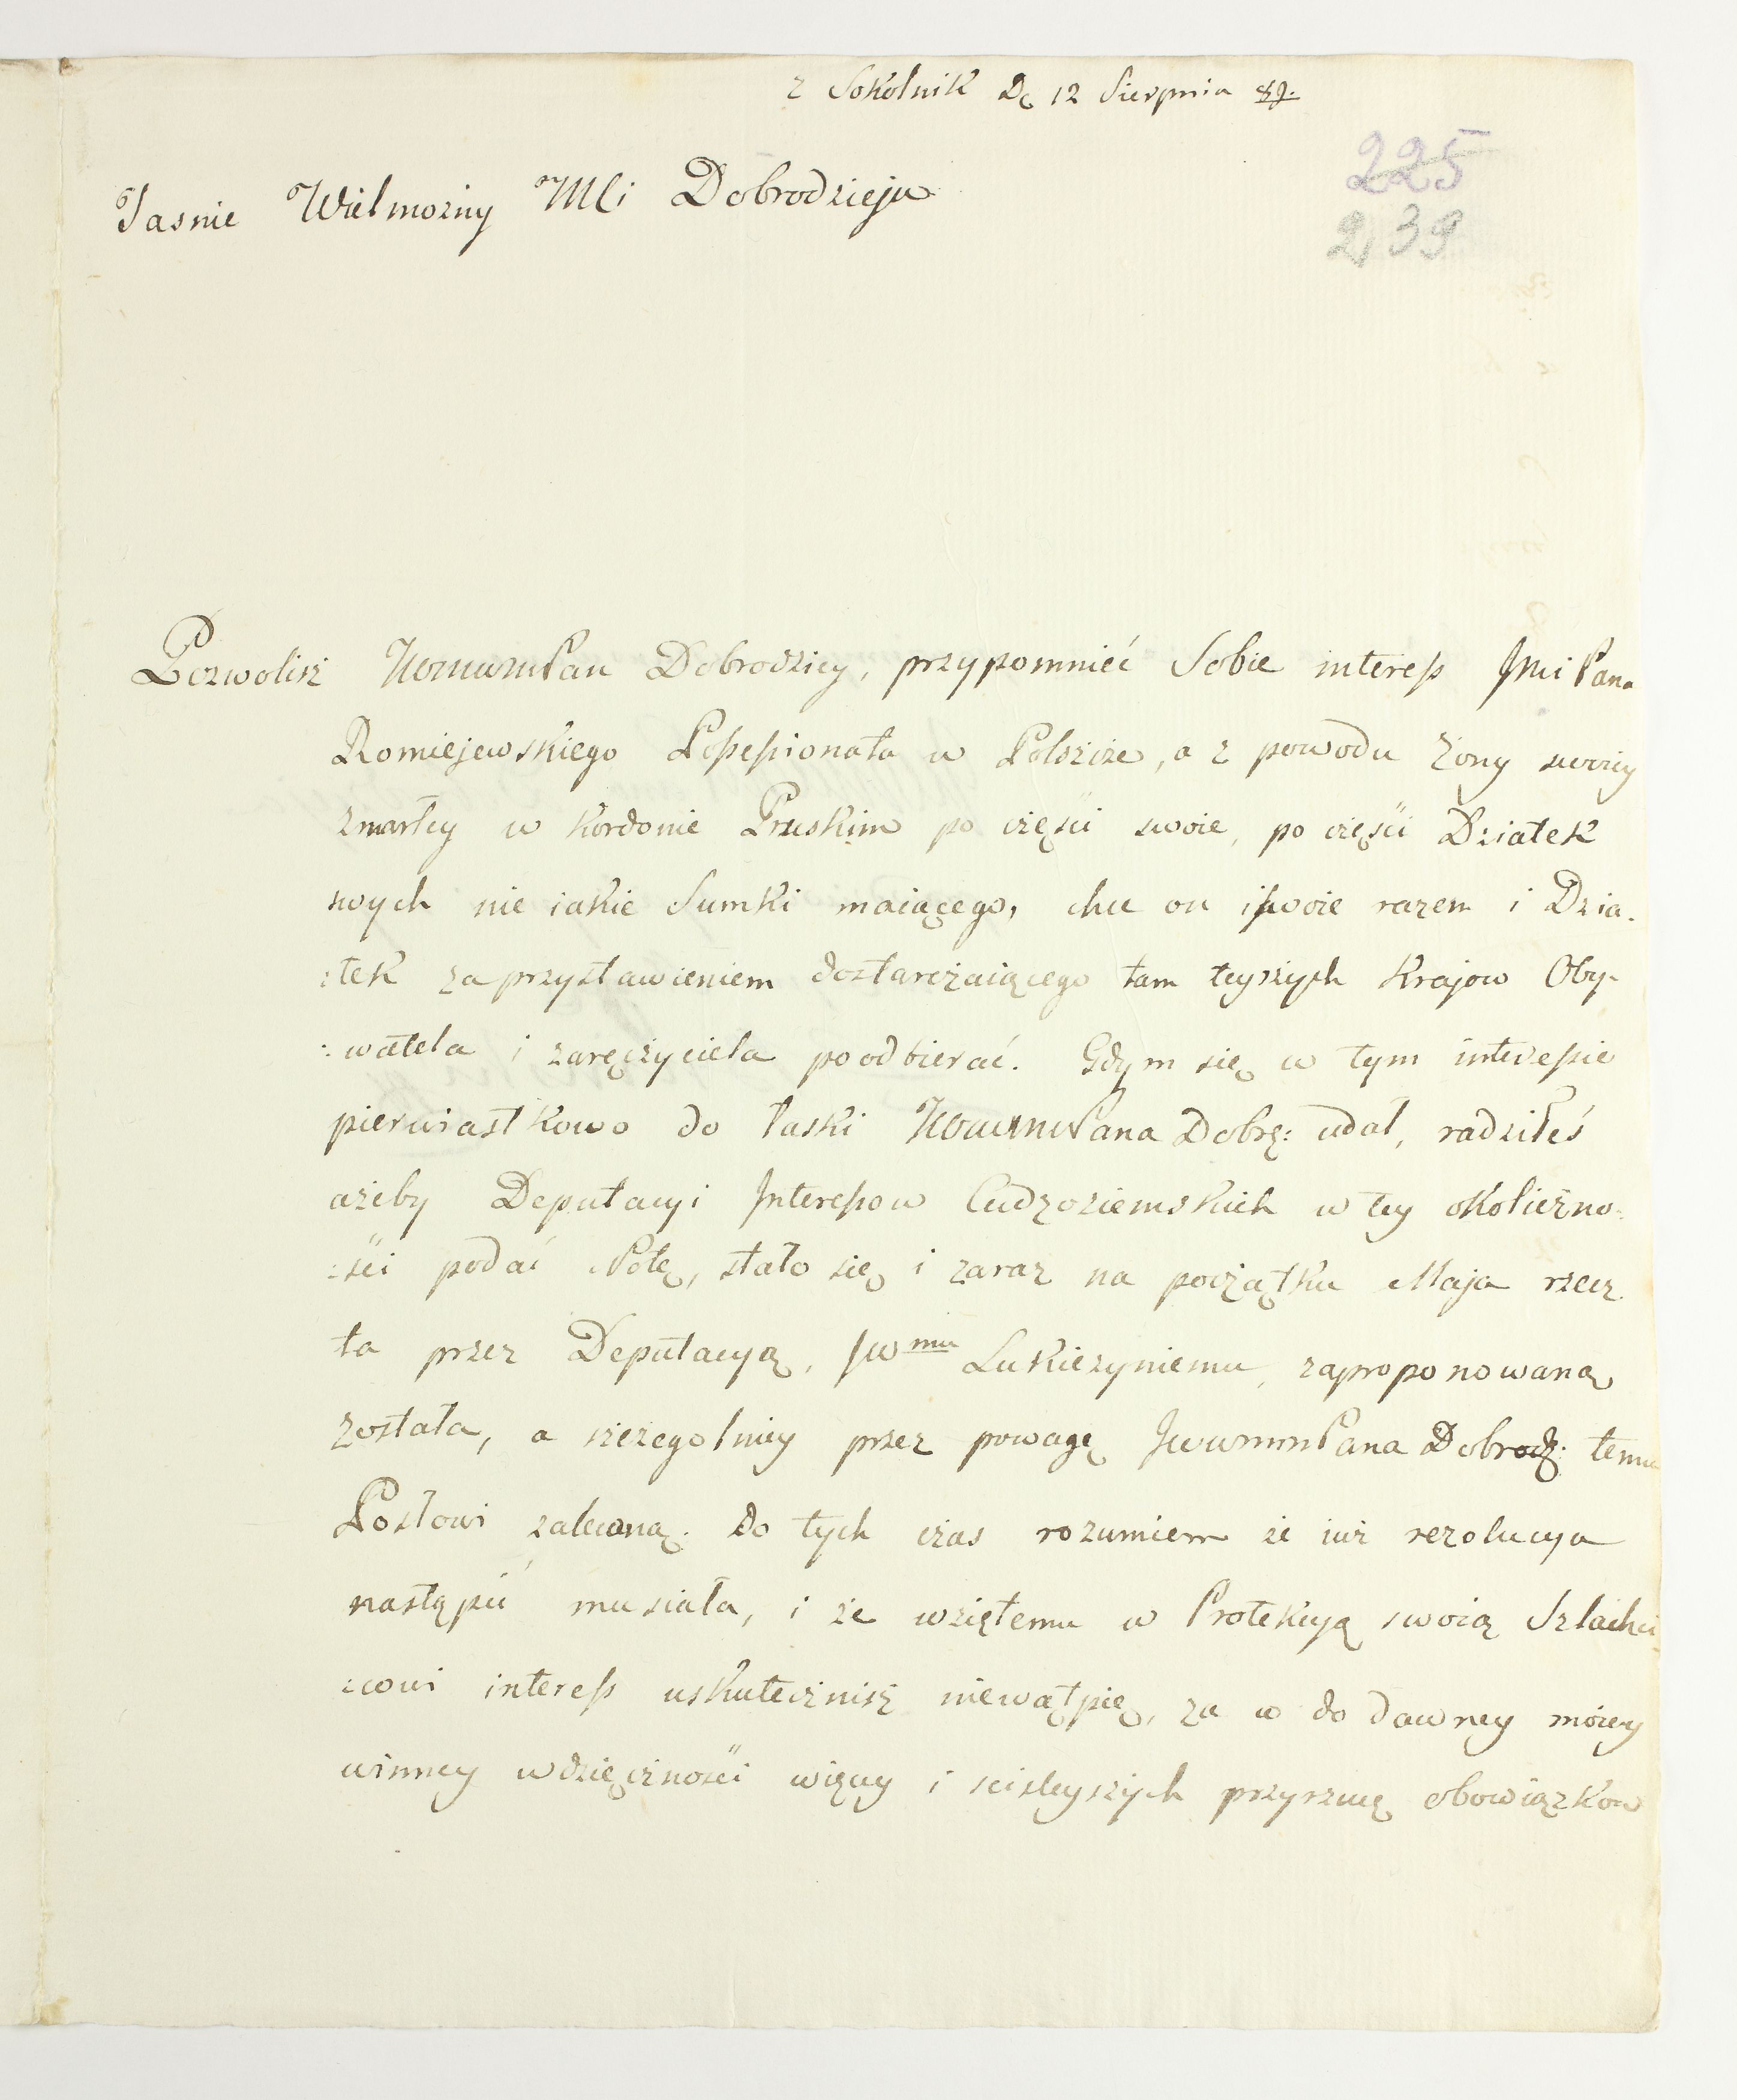 z Sokolnik D. 12 Sierpnia 89.
225
239
Jasnie Wielmozny Mci Dobrodzieju
Pozwolisz JWWMWPan Dobrodziey, przypomnieć Sobie interess JmciPana
Romiejewskiego Possessionata w Polszcze, a z powodu Zony swoiey
zmarłey w Kordonie Pruskim po części swoie, po części Dziatek
swych nie iakie Sumki maiącego, chce on i swoie razem i Dzia-
:tek za przystawieniem dostarczaiącego tam teyszych Krajow Oby-
:watela i zaręczyciela poodbierać. Gdym się w tym interesie
pierwiastkowo do łaski JWWMWPana Dobrz: udał, radziłeś
ażeby Deputacyi Interessow Cudzoziemskich w tey okoliczno:
:ści podać Notę, stało się i zaraz na początku Maja rzecz
ta przez Deputacyą, JWmu Lukiezyniemu, zaproponowaną
została, a szczegolniey przez powagę JWWMWPana Dobrodz: temu
Posłowi zaleconą. do tych czas rozumiem że iuż rezolucya
nastąpić musiała, i że wziętemu w Protekcyą swoią Szlachci
:cowi interess uskutecznisz niewątpię, za co do dawney moiey
winney wdzięczności więcey i scisleyszych przyrzucę obowiązkow